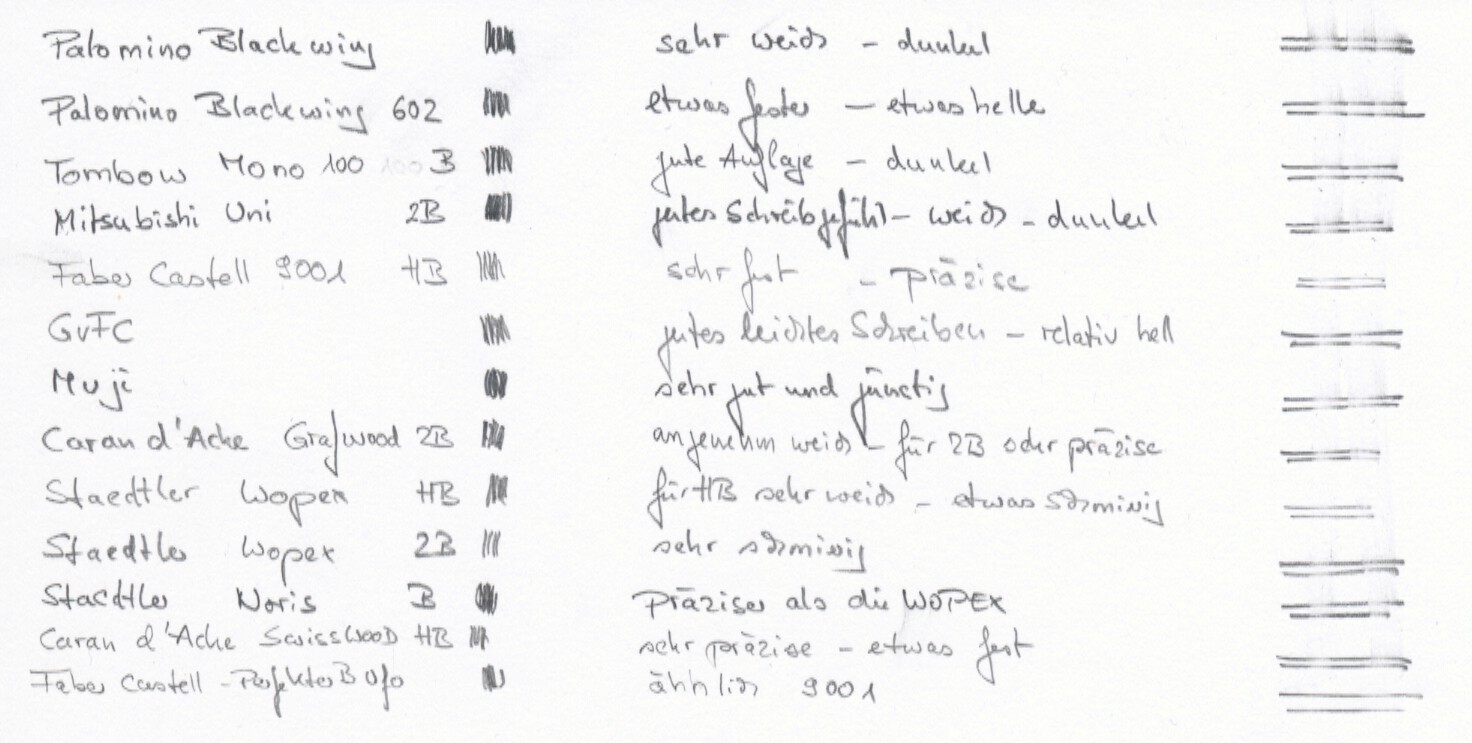 Palomino Blackwing sehr weich – dunkel
Palomino Blackwing 602 etwas fester – etwas heller
Tombow Mono 100 100 B gute Auflage – dunkel
Mitsubishi Uni 2B gutes Schreibgefühl – weich – dunkel
Faber Castell 9001 HB sehr fest – präzise
GvFC gutes leichtes Schreiben – relativ hell
Muji sehr gut und günstig
Caran d'Ache Grafwood 2B angenehm weich – für 2B sehr präzise
Staedtler Wopex HB für HB sehr weich – etwas schmierig
Staedtler Wopex 2B sehr schmierig
Staedtler Noris B Präziser als die WOPEX
Caran d'Ache SwissWooD HB sehr präzise – etwas fest
Faber Castell – Perfekter B ähnlich 9001